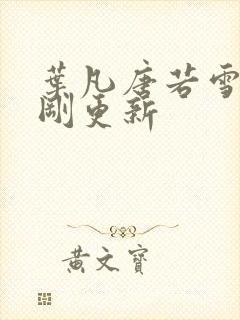 葉凡唐若雪
剛更新
黃文寶